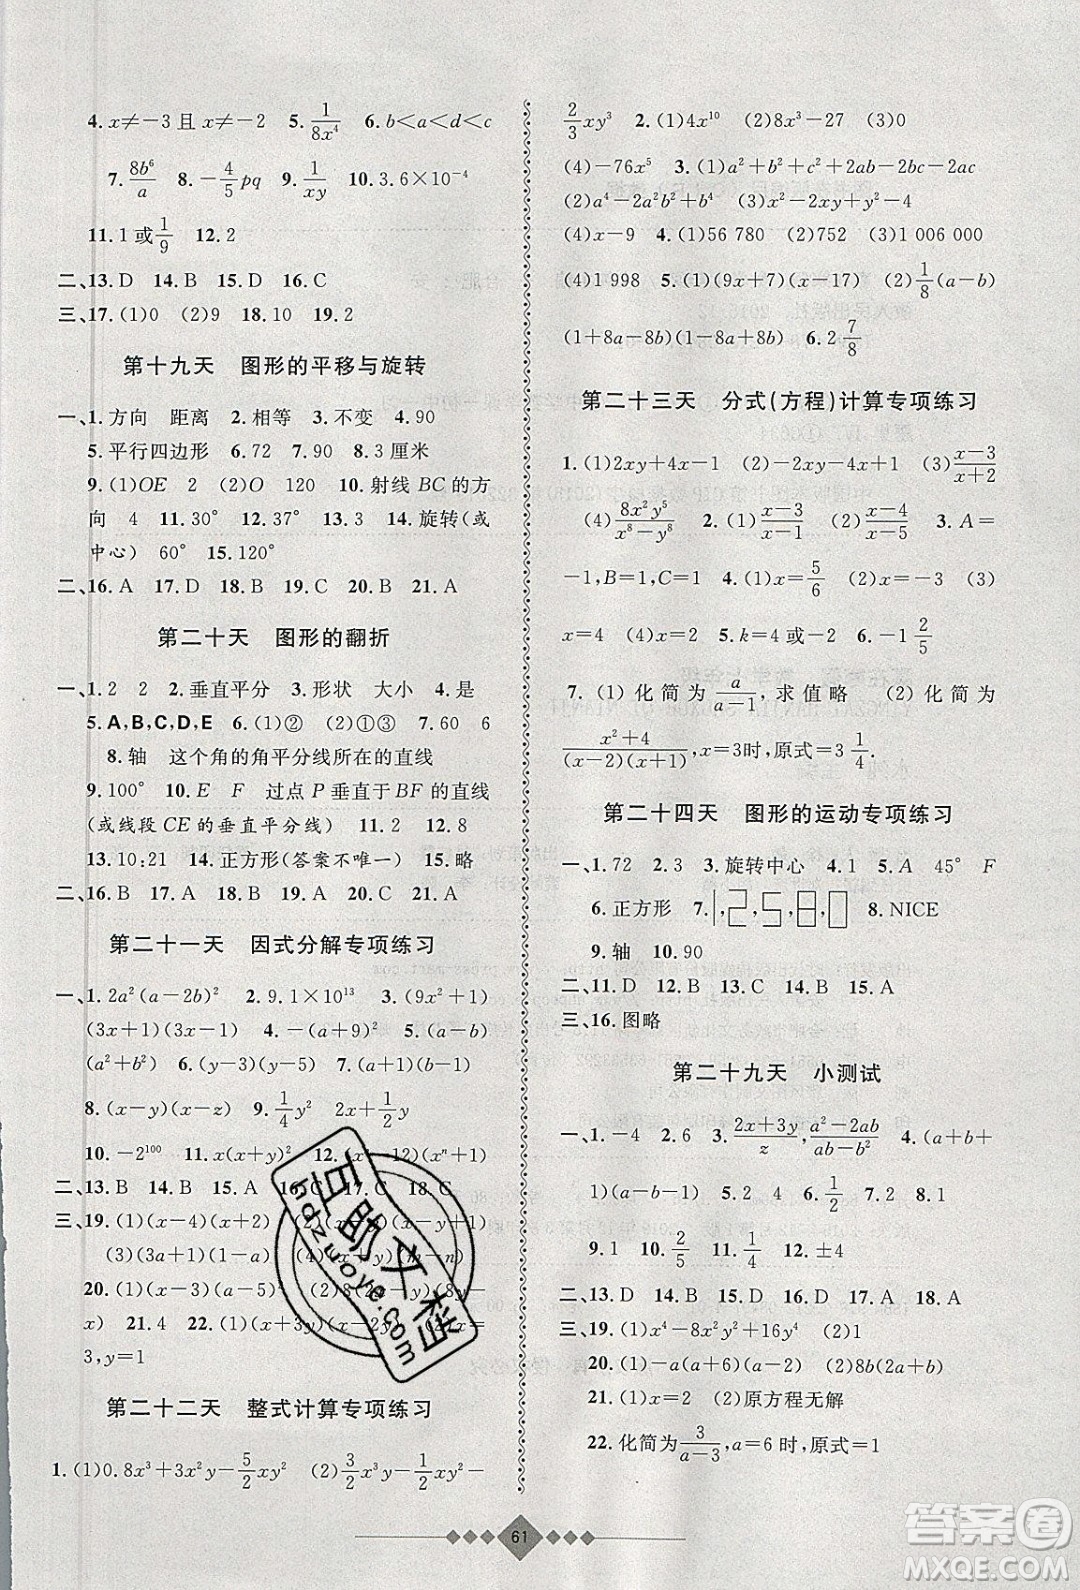 4. x≠−3 且 x≠−2　5. 1/(8x⁴)　6. b<a<d<c
7. 8b⁶/a　8. −4/5 pq　9. 1/(xy)　10. 3.6×10⁻⁴
11. 1 或 1/9　12. 2
二、13. D　14. B　15. D　16. C
三、17. (1)0　(2)9　18. 10　19. 2
第十九天　图形的平移与旋转
一、1. 方向　距离　2. 相等　3. 不变　4. 90
5. 平行四边形　6. 72　7. 90　8. 3厘米
9. (1)OE　2　(2)O　120　10. 射线 BC 的方
向　4　11. 30　12. 2　13. 3　14. 旋转(或
中心)　60°　15. 120°
二、16. A　17. D　18. A　19. C　20. A　21. A
第二十天　图形的翻折
一、1. 2　2　2. 垂直平分　3. 形状　大小　4. 是
5. A,B,C,D,E　6. (1)②　(2)①③　7. 60　6
8. 轴　这个角的角平分线所在的直线
9. 100°　10. E　F　过点 P 垂直于 BF 的直线
(或线段 CE 的垂直平分线)　11. 2　12. 8
13. 10:21　14. 正方形(答案不唯一)　15. 略
二、16. B　17. A　18. D　19. C　20. A　21. A
第二十一天　因式分解专项练习
一、1. 2a²(a−2a²)　2. 9.1×10¹³　3. (9x²+1)
(3x+1)(3x−1)　4. −(a+9)²　5. (a−b)
(a²+b²)　6. (y−3)(y−5)　7. (a²+1)
8. (x−y)(x−y−z)　9. 1/4 y²　2x+1/2 y
10. −2¹⁰⁰　11. (x−y)　12. (xⁿ+1)(xⁿ−1)
二、13. B　14. B　15. A　16. C　17. C　18. B
三、19. (1)(x−4)(x+2)　(2)(x−2)(x−1)
(3)(3−a)(1−a)　(4)(x+y)(m−n)
20. (1)(a−5)⁴　(2)8(2x+y)(y−
x)　21. 4　22. (1)(x+3y)(x−y)
3,y=1
第二十二天　整式计算专项练习
1. (1)0.8x³+3x²y−5/2 xy²　(2)3/2 x³−1/2 xy²−
2/3 xy³　2. (1)4x¹⁰　(2)8x³−27　(3)0
(4)−76x⁵　3. (1)a²+b²+c²+2ab−2bc−2ac
(2)a⁴−2a²b²+b⁴　(3)x²−2xy+y²−4
(4)x−9　4. (1)56 780　(2)1　(3)1 006 000
(4)1 998　5. (1)(9x+7)(x−17)　(2)1/8(a−b)
(1+8a−8b)(1−8a+8b)　6. 2 7/8
第二十三天　分式(方程)计算专项练习
1. (1)2xy+4x−1　(2)−xy　(3)(x−3)/(x+2)
(4)8x²y⁵/(x⁸−y⁸)　2. (1)(x−3)/(x−1)　(2)(x−4)/(x−5)　3. A=
−1,B=1,C=1　4. (1)x=5/6　(2)x=−3　(3)
x=4　(4)x=0　5. k=4 或−1　6. 2/5
7. (1) 化简为 a/(a−1), 求值略　(2) 化简为
(x²+4)/((x−2)(x+2)), x=3时,原式=3 1/4.
第二十四天　图形的运动专项练习
一、1. 72　2. 3　3. 旋转中心　4. 1　5. A　45°　F
6. 正方形　7. 1,2,5,8,0　8. NICE
9. 轴　10. 90
二、11. D　12. B　13. C　14. B　15. A
三、16. 图略
第二十九天　小测试
一、1. −4　2. 6　3. (2x+3y)/z, (a²−2ab)/(ab−b²)　4. (a+b+
1)(a−b−1)　5. 2　4　6. 1/2　7. 2　8. 1
9. 1　10. 2/5　11. 2/3　12. ±4
二、13. D　14. D　15. D　16. D　17. A　18. A
三、19. (1)x⁴−8x²y²+16y⁴　(2)1
20. (1)(x−y−1)(x−y+1)　(2)8b(2a−b)
21. (1)x=2　(2)原方程无解
22. 化简为 3/(a−3), a=6时,原式=1
61
直助文档
hdzuoye.com
答案圈
MXQE.COM